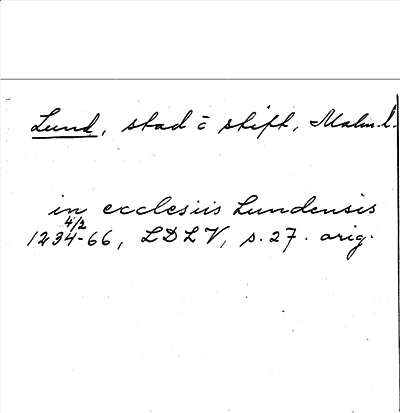 Lund, stad c̄ stift, Malm.l.
in ecclesiis Lundensis
4/2
1234-66, LDLV, s.27. orig.